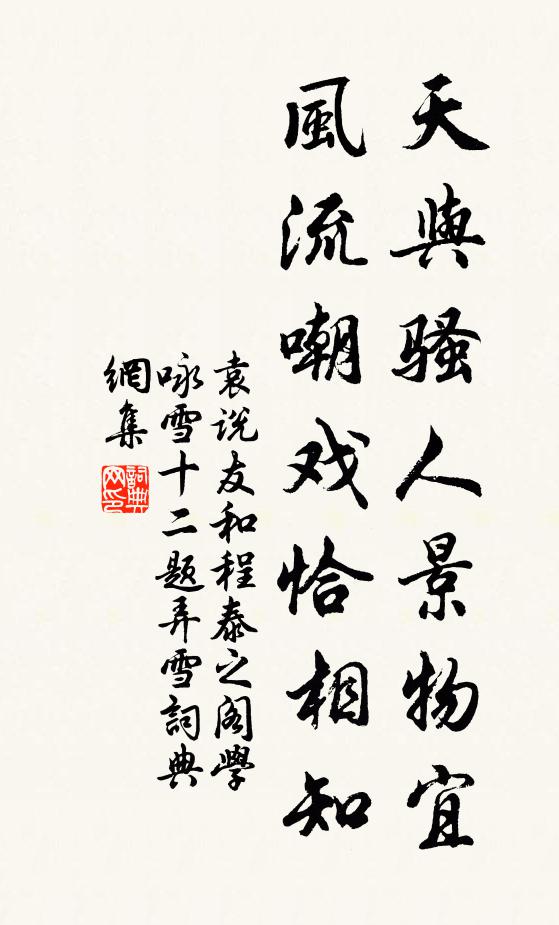 天與骚人景物宜
風流嘲戏恰相知
袁说友和程泰之阁學
咏雪十二题弄雪詞典
網集
詞典網印